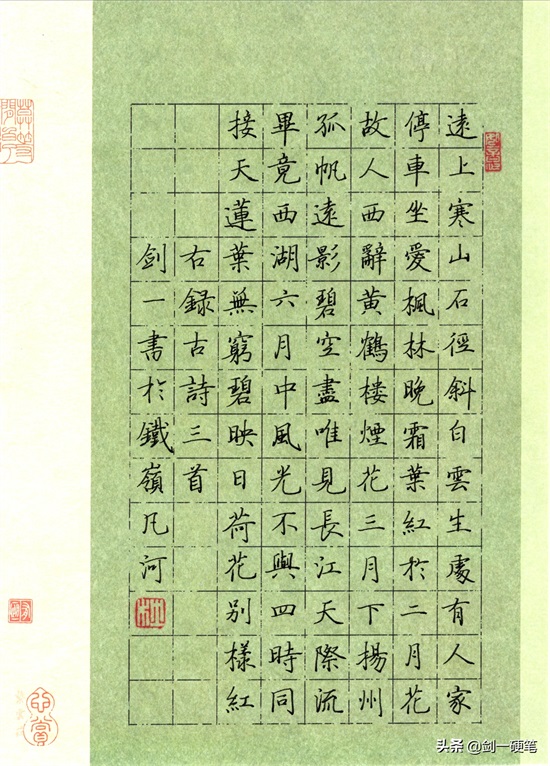 遠上寒山石徑斜白雲生處有人家
停車坐愛楓林晚霜葉紅於二月花
故人西辭黃鶴楼煙花三月下揚州
孤帆遠影碧空盡唯見長江天際流
畢竟西湖六月中風光不與四時同
接天蓮葉無窮碧映日荷花别樣紅
右録古詩三首
剑一書於鐵嶺凡河
头条 @剑一硬笔